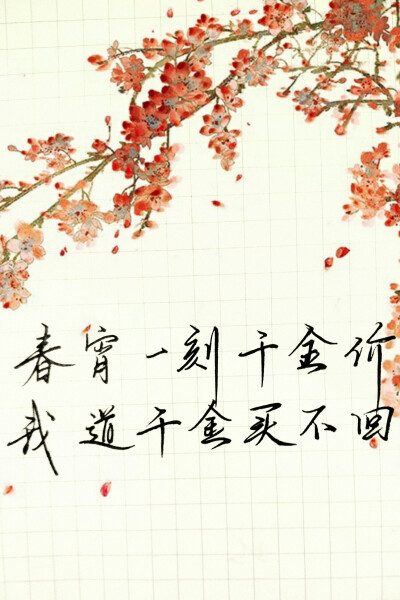 春宵一刻千金价
我道千金买不回